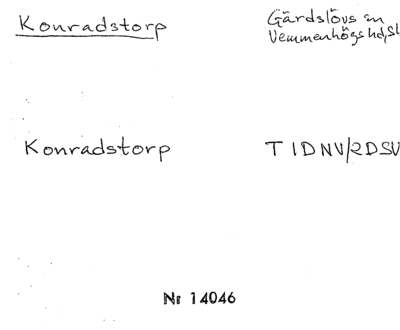 Konradstorp
Gärdslövs sn
Vemmenhögs hd, Sk
Konradstorp
T 1DNV/2DSV
Nr 14046